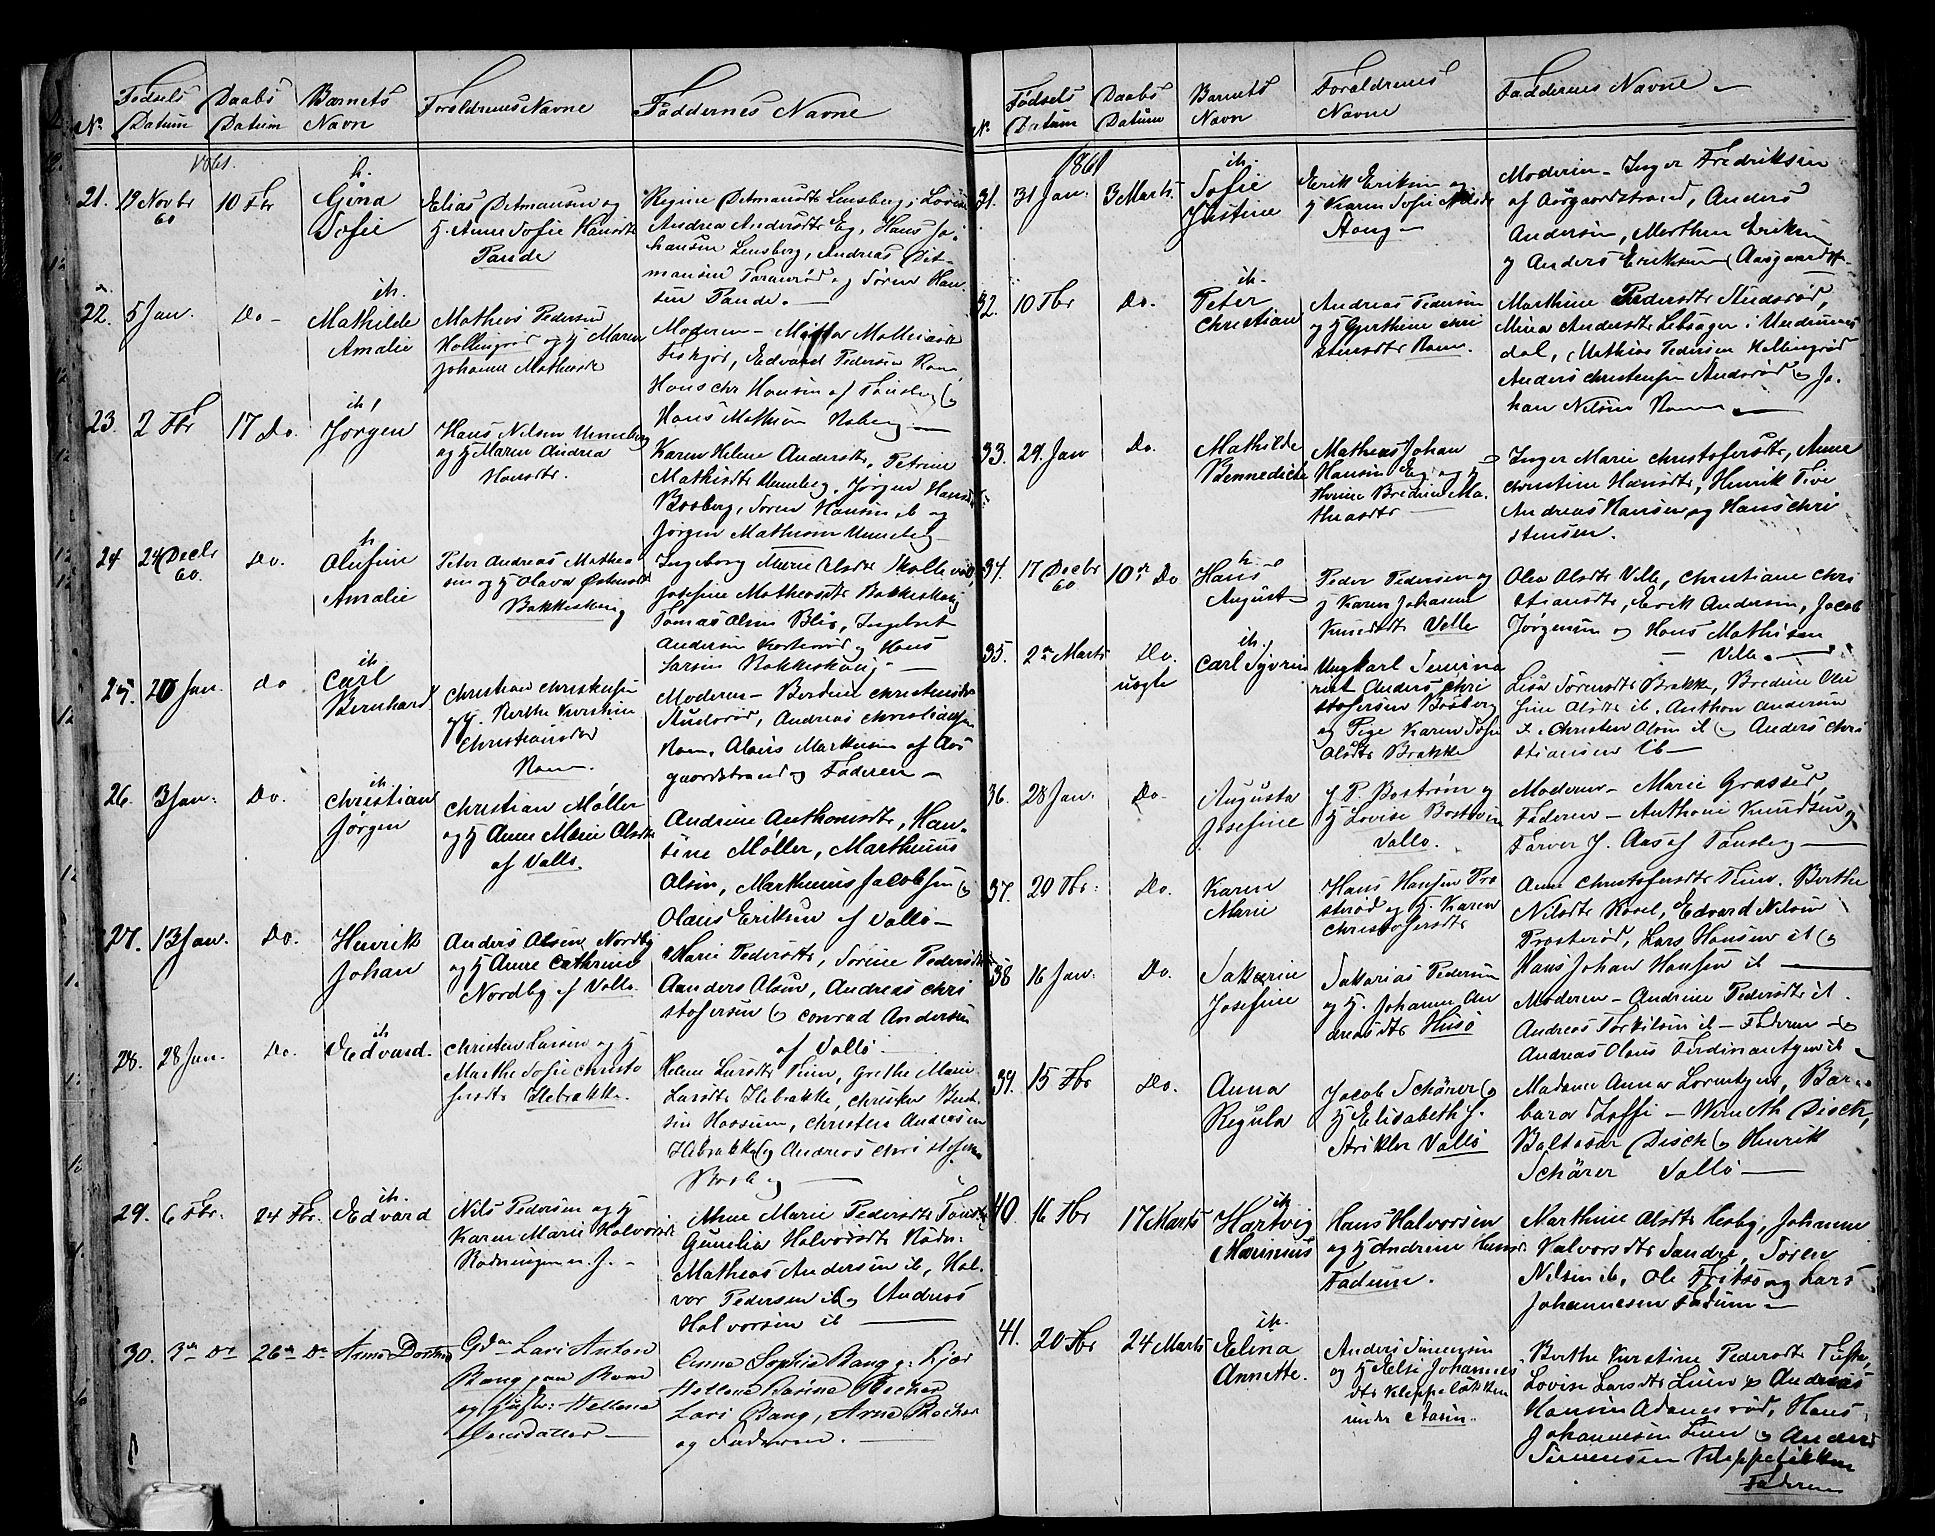 No. Fødsels Datum Daabs Datum Barnets Navn Forældrenes Navne Faddernes Navne
1861.
21. 19 Novbr 60 10 Fbr h. Gina Sofie
Elias Ditmansen og
h Anne Sofie Hansdtr
Tande
Regine Ditmansdtr Lensberg,
Andrea Andersdtr Eg, Hans Jo-
hansen Lensberg, Andreas Dit-
mansen og Søren Han-
sen Tande.
22. 5 Jan. Do - ih. Mathilde Amalie
Mathias Pedersen
Hollingrød og h Maren
Johanne Mathisdtr
Moderen - Mathiasdtr
Edvard Pedersen Ram,
Hans Chr Hansen af Tønsberg og
Hans Mathisen Roberg
23. 2 Fbr 17 Do. ih! Jørgen
Hans Nilsen Unneberg
og h Maren Andrea
Hansdtr.
Karen Helene Andersdtr, Petrine
Mathisdtr Unneberg, Jørgen Hansen
Bosberg, Søren Hansen ib og
Jørgen Mathisen Unneberg
24 24 Decbr 60. Do. h Olufine Amalie
Peter Andreas Mathea
sen og h Olava Østensdtr
Bakkeskaug
Ingeborg Marie Olsdtr
Josefine Matheasdtr Bakkeskaug
Tomas Olsen Ingebret
Andersen og Hans
Larsen Bakkeskaug
25. 20 Jan. do ih. Carl Bernhard
Christian Christensen
og h. Berthe Kirstine
Christiansdtr
Ram.
Moderen - Berdine Christensdtr
Audsrød, Andreas Christiansen
Ram, Olaus Markusen af Aas
gaardstrand og Faderen -
26. 3 Jan: Do. ih. Christian Jørgen
Christian Møller
og h Anne Marie Olsdtr
af Vallø.
Andrine Anthonisdtr, Han-
sine Møller, Marthinus
Olsen, Marthinus Jacobsen og
Olaus Eriksen af Vallø -
27. 13 Jan. Do. Henrik Johan
Anders Olsen Nordby
og h Anne Cathrine
Nordby af Vallø.
Marie Pedersdtr, Sørine Pedersdtr
Aanders Olsen, Andreas Chri
stofersen og Conrad Andersen
af Vallø
28. 28 Jan. Do. ih. Edvard.
Christen Larsen og h
Marthe Sofie Christo
fersdtr Ilebrække.
Helene Larsdtr Teien, Grethe Marie
Larsdtr Ilebrække, Christen
Christen Andersen
Ilebrække og Andreas Christofersen
Bosberg
29. 6 Fbr. 24 Fbr. ih. Edvard
Nils Pedersen og h
Karen Marie Halvorsdtr
Rødningen n. J. -
Anne Marie Pedersdtr
Gunelia Halvorsdtr Rødn:
Mathias Andersen ib, Hal-
vor Pedersen ib og Andreas
Halvorsen ib
30. 3de Do 26de Do Anna Dorthea
Gdm Lars Anton
Bang paa Rom
og Hustr: Hellene
Hansdatter -
Anna Sophia Bang g: Kjær
Hellene Barine Becher
Lars Bang, Arne Becher
og Faderen.
No. Fødsels Datum Daabs Datum Barnets Navn Forældrenes Navne Faddernes Navne -
1861
31. 31 Jan. 3 Marts. ih. Sofie Justine
Erik Eriksen og
h Karen Sofie Nilsdtr
Stang -
Moderen - Inger Fredriksen
af Aasgaardstrand, Anders
Andersen, Morthen Eriksen
og Anders Eriksen (Aasgaardst-
32. 10 Fbr Do. ih. Peter Christian
Andreas Pedersen
og h Gurthine Chri
stensdtr Ram.
Marthine Pedersdtr Audsrød,
Mina Andersdtr i Undrums
dal, Mathias Pedersen Hollingrød
Anders Christensen Audsrød og Jo-
han Nilsen Ram
33. 29. Jan Do. Mathilde Bennedicte
Mathias Johan
Hansen Eg og h
Thrine Bredine Ma-
thiasdtr
Inger Marie Christofersdtr, Anne
Christine Hansdtr, Henrik
Andreas Hansen og Hans Chri
stensen.
34. 17 Decbr 60 10de Do h. Hans August
Peder Pedersen og
h Karen Johanne
Knudsdtr Velle
Olea Olsdtr Velle, Christiane Chri
stiansdtr, Erik Andersen, Jacob
Jørgensen og Hans Mathisen
Velle.
35. 2de Marts Do. uægte ih. Carl Syverin
Ungkarl Semina
rist Anders Chri
stofersen Bosberg
og Pige Karen Sofie
Olsdtr Brække
Lisa Sørensdtr Brække, Bredine Olu
fine Olsdtr ib. Anthon Andersen
ib. Christen Olsen ib og Anders Chri
stiansen ib -
36. 28 Jan. Do. Augusta Josefine
J. P. Bostrøm og
h Lovise Bostrøm
Vallø.
Moderen - Marie Grasser,
Faderen - Anthoni Knudsen og
Farver J. Aas af Tønsberg
37. 20 Fbr: Do. Karen Marie
Hans Hansen Pro
sterød og h. Karen
Christofersdtr
Anne Christofersdtr Teien. Berthe
Nilsdtr Rosel, Edvard Nilsen
Prosterød, Lars Hansen ib og
Hans Johan Hansen ib
38 16 Jan: Do. Sakarine Josefine
Sakarias Pedersen
og h. Johanne An
dreasdtr Husø
Moderen - Andrine Pedersdtr ib.
Andreas Torkilsen ib - Faderen - og
Andreas Olaus Ferdinantsen ib
39. 15 Fbr Do. Anna Regula
Jacob Schärer og
h Elisabeth f.
Strikler Vallø
Madame Anna Lorentzen, Bar-
bara Werneth Disch,
Baltasar Disch og Henrik
Schärer Vallø
40. 16 Fbr 17 Marts ih Hartvig Marinius
Hans Halvorsen
og h Andrine Hansd.
Fadum.
Marthine Olsdtr Hesby, Johanne
Halvorsdtr Sandre, Søren
Nilsen ib, Ole og Lars
Johannesen Fadum -
41. 20 Fbr 24 Marts ih. Elina Annette.
Anders Simensen
og h Else Johannes
dtr Kleppeløkken
under Aasen.
Berthe Kirstine Pedersdtr
Lovise Larsdtr Lien og Andreas
Hansen Adamsrød, Hans
Johannesen Lien og Anders
Simensen Kleppeløkken
Faderen